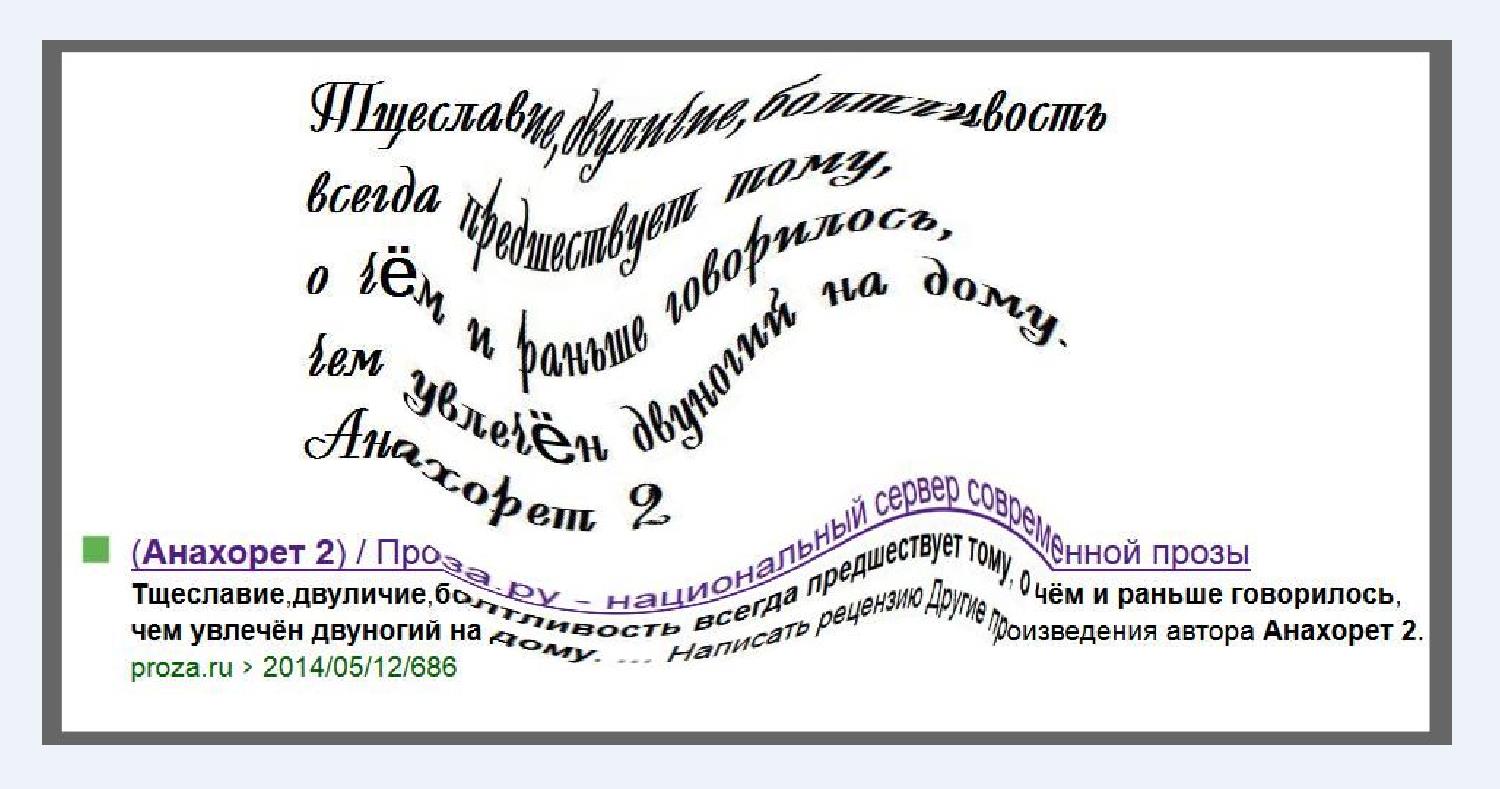 Тщеславие,двуличие,болтливость
всегда предшествует тому,
о чём и раньше говорилось,
чем увлечён двуногий на дому.
Анахорет 2
(Анахорет 2) / Проза.ру - национальный сервер современной прозы
Тщеславие,двуличие,болтливость всегда предшествует тому, о чём и раньше говорилось,
чем увлечён двуногий на дому. ... Написать рецензию Другие произведения автора Анахорет 2.
proza.ru > 2014/05/12/686